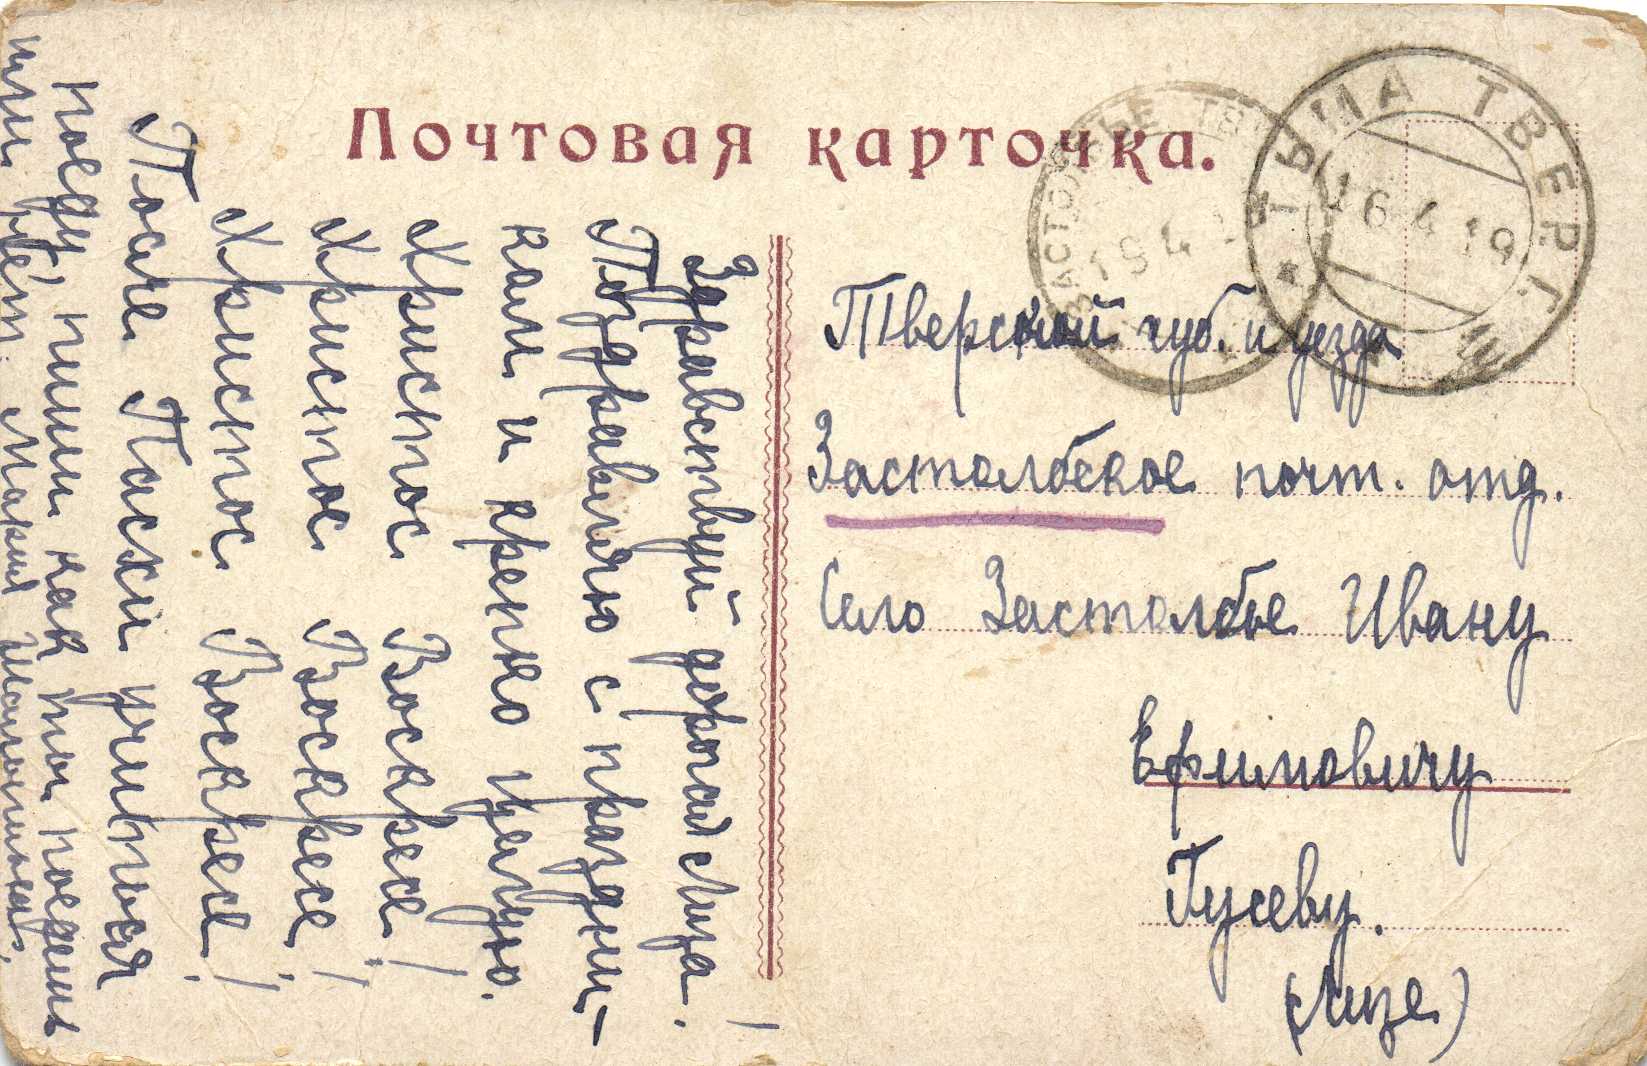 Почтовая карточка.
ТЬМА ТВЕР. Г.
16 4 19
ЗАСТОЛБЬЕ ТВ
19 4
Тверской губ. и уезда
Застолбское почт. отд.
Село Застолбье Ивану
Ефимовичу
Гусеву.
(Лизе)
Здравствуй дорогая Лиза!
Поздравляю с праздни-
ком и крепко целую.
Христос Воскресе!
Христос Воскресе!
Христос Воскресе!
После Пасхи учиться
поеду, пиши как ты поедешь
или нет. Мария